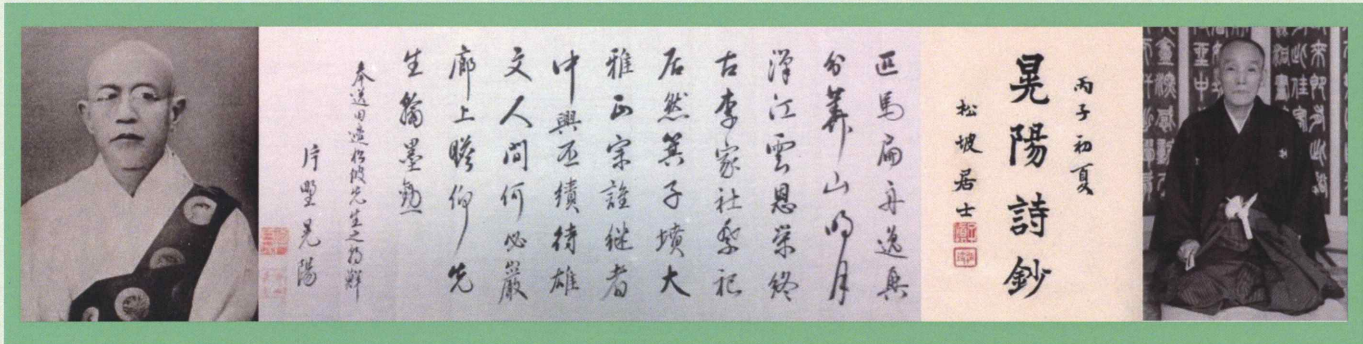 丙子初夏
晃陽詩鈔
松坡居士
匹馬扁舟逸興
分華山明月
漢江雲恩栄終
古李家社祭祀
居然箕子墳大
雅正宗誰継者
中興丕績待雄
文人間何必巖
廊上瞻仰先
生翰墨勲
奉送田邊松坡先生之朝鮮
片野晃陽